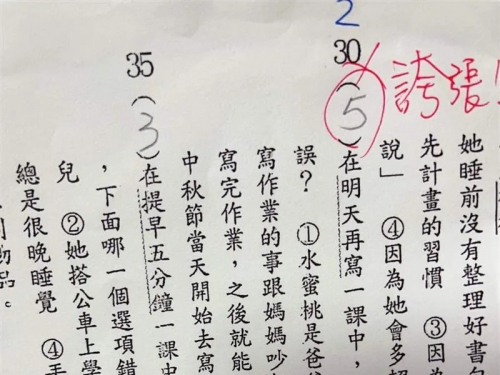 2
誇張!
她睡前沒有整理好書
先計畫的習慣 ③因為
說」 ④因為她會多
30 (5) 在明天再寫一課中，
誤？ ①水蜜桃是爸
寫作業的事跟媽媽吵
寫完作業，之後就能
中秋節當天開始去寫
35 (3) 在提早五分鐘一課中
，下面哪一個選項錯
兒 ②她搭公車上學
總是很晚睡覺 ④
物品。